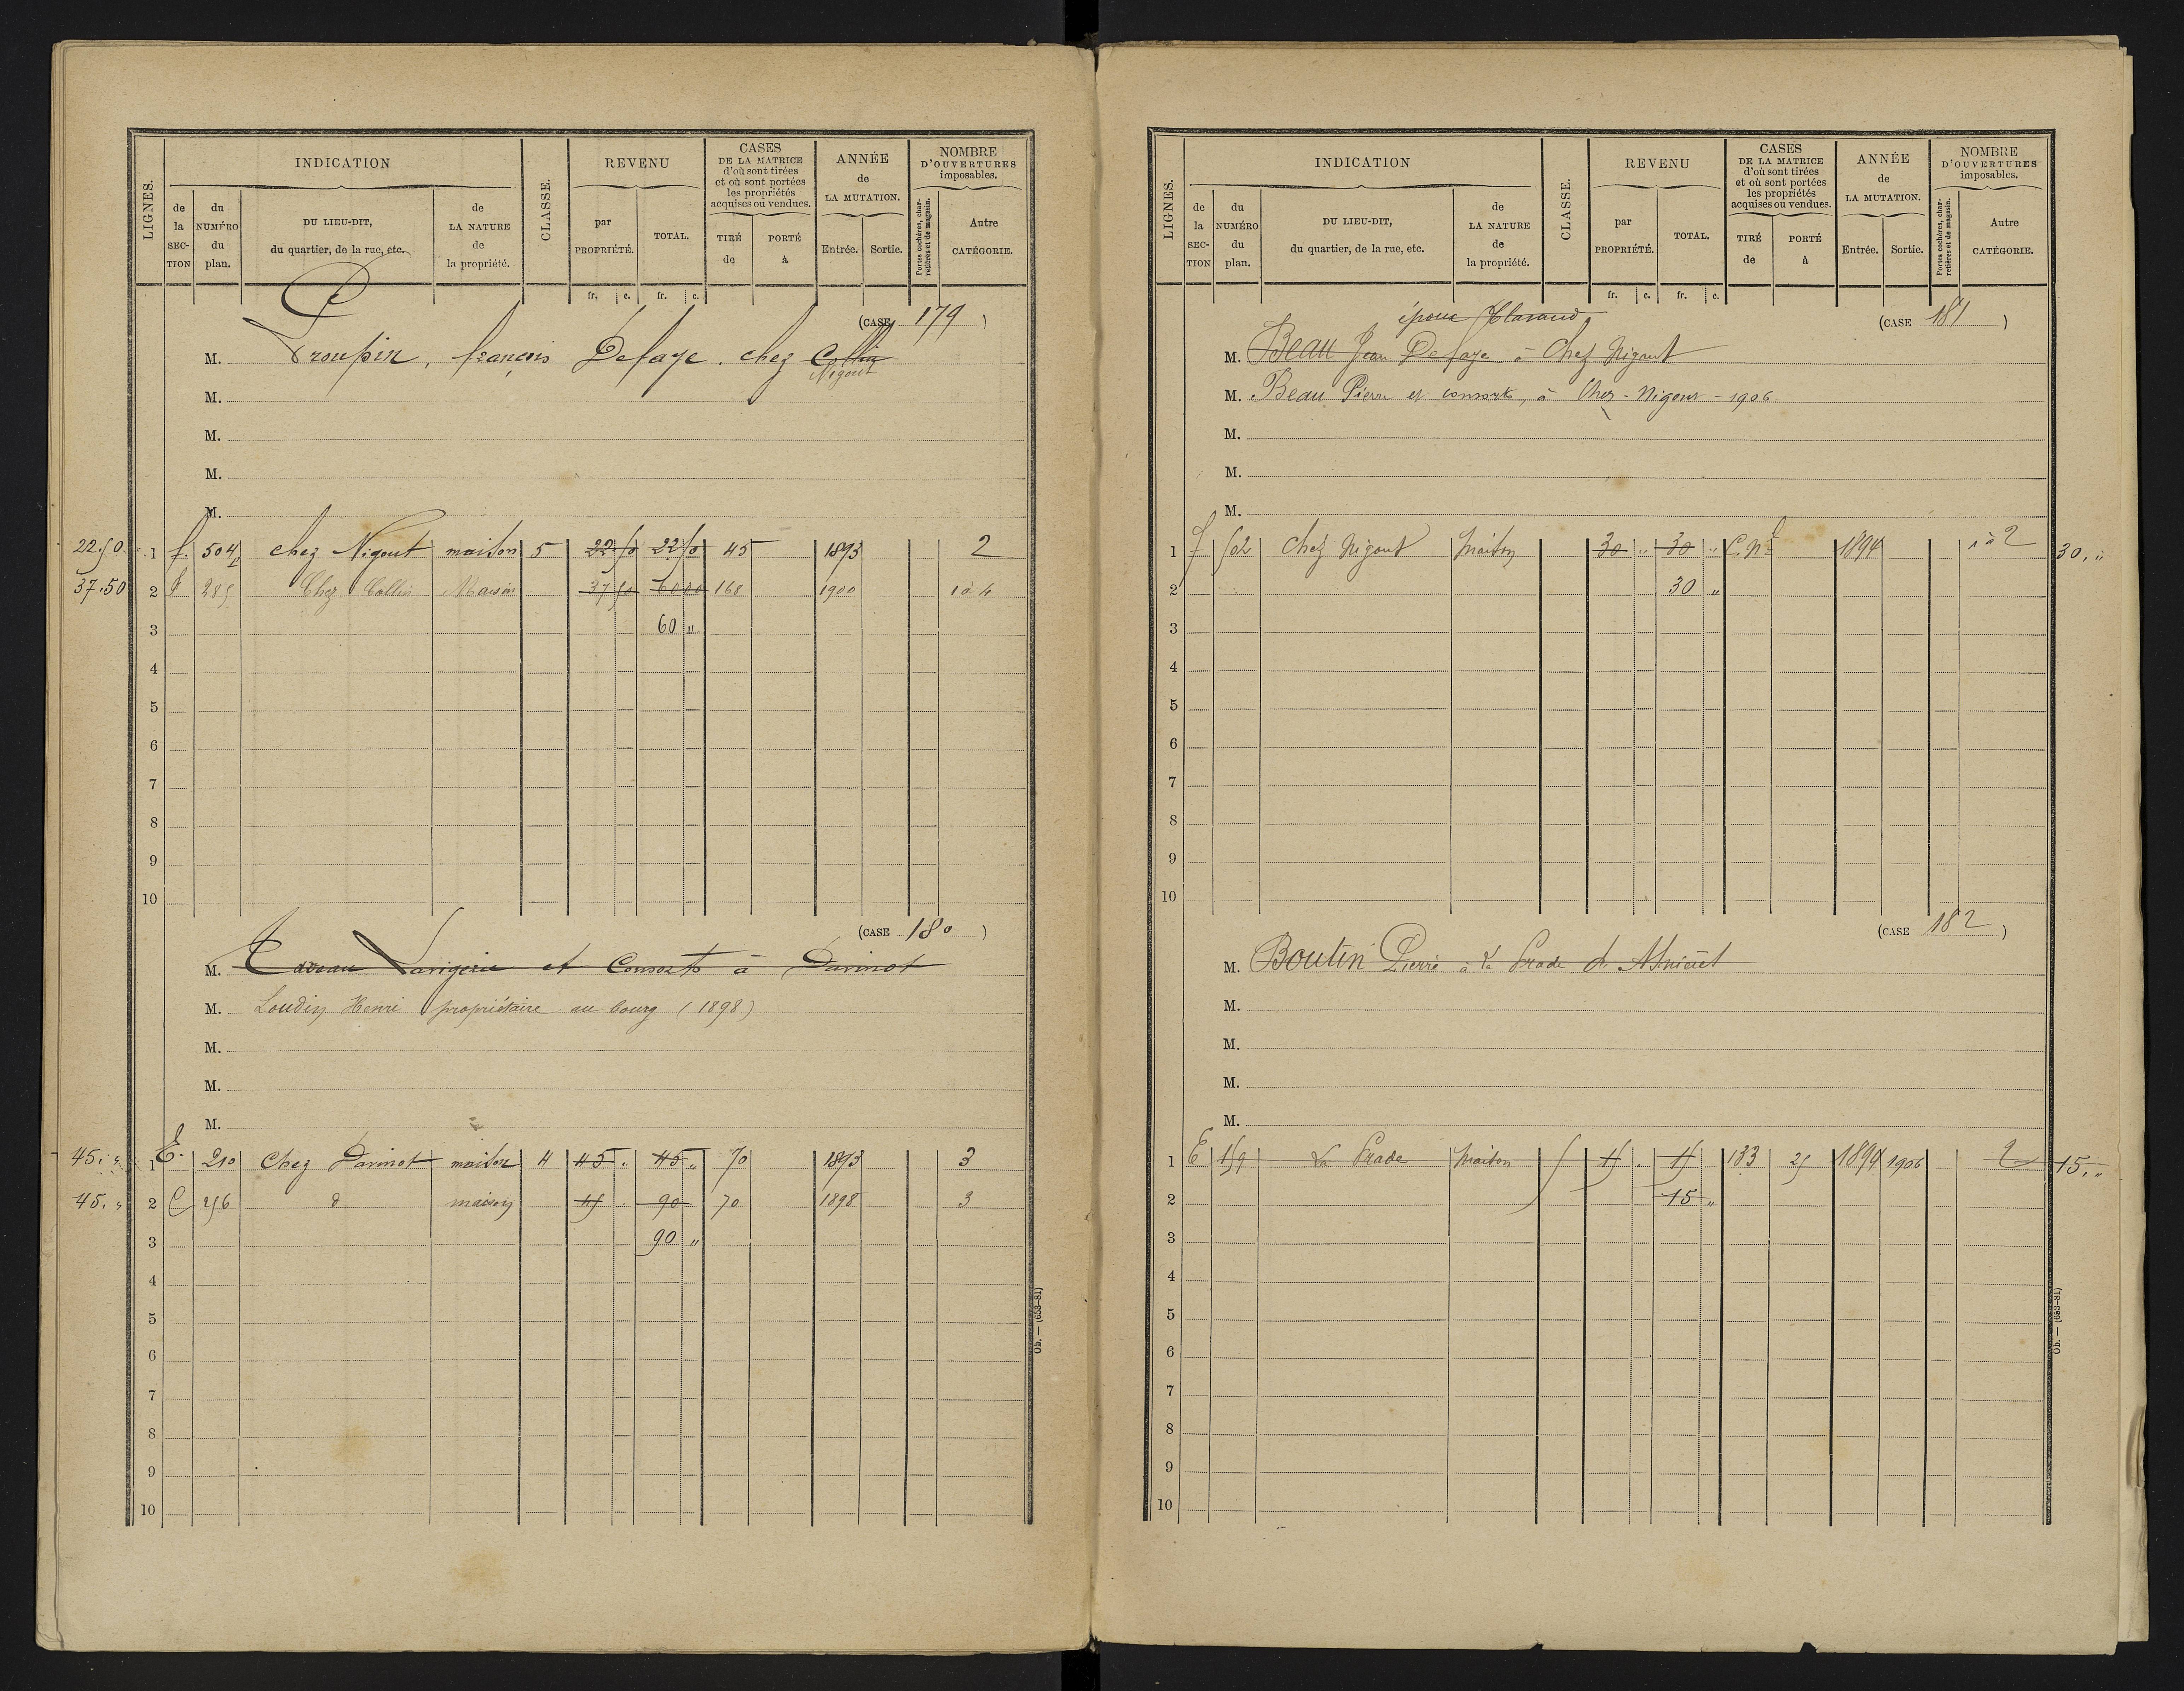 LIGNES.
INDICATION
de la SECTION
du NUMÉRO du plan.
DU LIEU-DIT, du quartier, de la rue, etc.
de LA NATURE de la propriété.
CLASSE.
REVENU
par PROPRIÉTÉ.
TOTAL.
CASES DE LA MATRICE d'où sont tirées et où sont portées les propriétés acquises ou vendues.
TIRÉ de
PORTÉ à
ANNÉE de LA MUTATION.
Entrée.
Sortie.
NOMBRE D'OUVERTURES imposables.
Portes cochères, charretières et de magasin.
Autre CATÉGORIE.
fr. c. fr. c.
(CASE 179 )
M. Proupin, françois Defaye. chez Collin
Nigout
M.
M.
M.
M.
22.50 1 f. 504 chez Nigout maison 5 22 50 22 50 45 1893 2
37.50 2 f 285 Chez Collin Maison 37 50 60 00 168 1900 1 à 4
3 60 "
4
5
6
7
8
9
10
(CASE 180 )
M. Lavigerie et Consorts à Parinot
M. Loudin Henri propriétaire au bourg (1898)
M.
M.
M.
45. " 1 E. 210 Chez Parinot maison 4 45 . 45 " 70 1893 3
45. " 2 C 256 d maison 45 . 90 70 1898 3
3 90 "
4
5
6
7
8
9
10
Ob. — (653-81)
LIGNES.
INDICATION
de la SECTION
du NUMÉRO du plan.
DU LIEU-DIT, du quartier, de la rue, etc.
de LA NATURE de la propriété.
CLASSE.
REVENU
par PROPRIÉTÉ.
TOTAL.
CASES DE LA MATRICE d'où sont tirées et où sont portées les propriétés acquises ou vendues.
TIRÉ de
PORTÉ à
ANNÉE de LA MUTATION.
Entrée.
Sortie.
NOMBRE D'OUVERTURES imposables.
Portes cochères, charretières et de magasin.
Autre CATÉGORIE.
fr. c. fr. c.
(CASE 181 )
époux Clavaud
M. Beau Jean Defaye à Chez Nigout
M. Beau Pierre et consorts, à Chez-Nigout - 1906
M.
M.
M.
1 f 502 Chez Nigout Maison 30 " 30 " C. Nle 1894 1 à 2 30. "
2 30 "
3
4
5
6
7
8
9
10
(CASE 182 )
M. Boutin Pierre à la Prade
M.
M.
M.
M.
1 E 159 La Prade Maison 5 15 . 15 133 25 1894 1906 2 15. "
2 15 "
3
4
5
6
7
8
9
10
Ob. — (653-81)